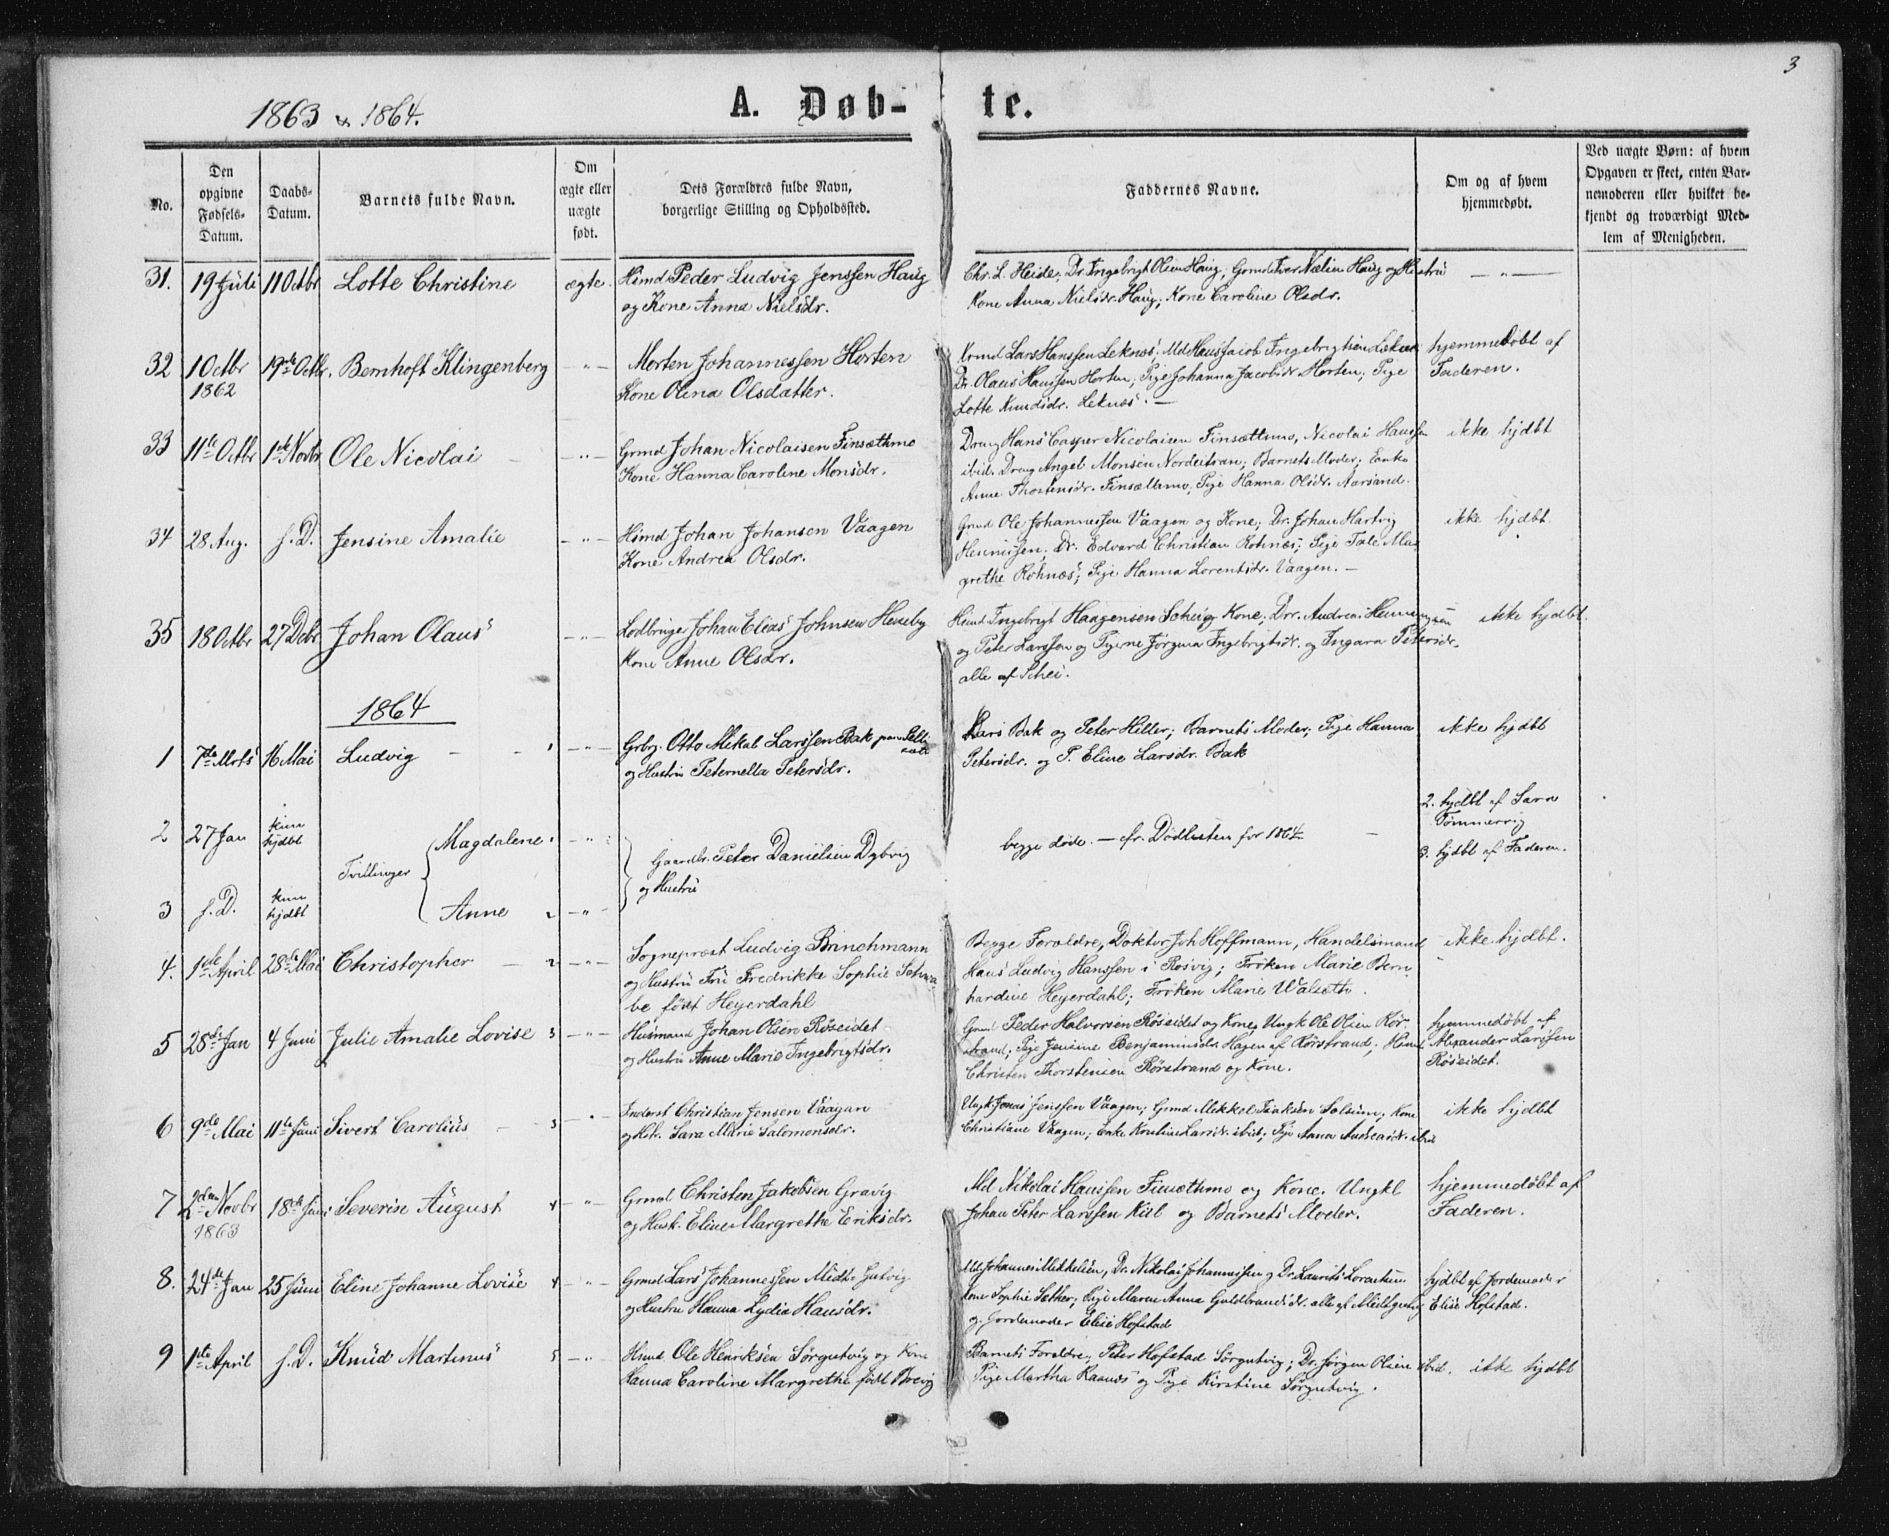 3
1863 & 1864.
A. Døb- te.
No.
Den opgivne Fødsels-Datum.
Daabs-Datum.
Barnets fulde Navn.
Om ægte eller uægte født.
Dets Forældres fulde Navn, borgerlige Stilling og Opholdssted.
Faddernes Navne.
Om og af hvem hjemmedøbt.
Ved uægte Børn: af hvem Opgaven er skeet, enten Barnemoderen eller hvilket bekjendt og troværdigt Medlem af Menigheden.
31. 19 Juli 11 Octbr Lotte Christine ægte. Hsmd Peder Ludvig Jenssen Haug
og Kone Anna Nielsdr.
Chr. L. Heide; Dr. Ingebrigt Olsen Haug; Grmd Iver Nælien Haug og Hustru — „ —
Kone Anna Nielsdr. Haug; Kone Caroline Olsdr.
32 1 Octbr 1862 19de Octbr. Bernhoft Klingenberg — „ — Morten Johannessen Horten
Kone Olina Olsdatter.
Grmd Lars Hanssen Leknæs; Md Hans Jacob Ingebrigtsen Leknæs
Dr. Olaus Hanssen Horten; Pige Johanna Jacobsdr. Horten; Pige
Lotte Knudsdr. Leknæs. —
hjemmedøbt af
Faderen.
33 11te Octbr 1ste Novbr Ole Nicolai — „ — Grmd Johan Nicolaisen Finsæthmo
Kone Hanna Caroline Monsdr.
Dreng Hans Casper Nicolaisen Finsættmo, Nicolai Hanssen
ibid. Dreng Angel Monsen Nordeistran; Barnets Moder; Enke
Anne Thorstensdr. Finsættemo, Pige Hanna Olsdr. Aarsand.
ikke hjdbt
34 28 Aug. s. D. Jensine Amalie — „ — Hsmd Johan Johansen Vaagen
Kone Andrea Olsdr.
Grmd Ole Johannessen Vaagen og Kone; Dr. Johan Hartvig
Hennissen; Dr. Edvard Christian Rohnæs; Pige Tale Mar
grethe Rohnæs; Pige Hanna Lorentsdr. Vaagen. —
ikke hjdbt.
35 18 Octbr 27 Decbr Johan Olaus — „ — Lodbruger Johan Elias Johnsen Heseby
Kone Anne Olsdr.
Hsmd Ingebrigt Haagensen Schei og Kone; Drr. Andreas Henningsen
og Peter Larssen og Pigerne Jørgina Ingebrigtsdr. og Ingara Petersdr.
alle af Schei.
ikke hjdbt.
1864
1 7de Mrts 16 Mai Ludvig 1 — „ — Grbrg. Otto Mikal Larssen Bak
og Hustru Peternella Petersdr.
Lars Bak og Peter Hiller; Barnets Moder; Pige Hanna
Petersdr. og P. Eline Larsdr. Bak
ikke hjdbt
2 27 Jan kun hjdbt Tvillinger Magdalene 1 — „ —
Gaardbr. Peter Danielsen Dybvig
og Hustru
begge døde. — cfr. Dødlisten for 1864 —
2. hjdbt af Sara
Tømmervig
3. hjdbt af Faderen.
3 s. D. kun hjdbt Anne 2 — „ —
4. 1ste April 28de Mai Christopher 2 — „ — Sognepræst Ludvig Brinchmann
og Hustru Fru Fredrikke Sophie
født Heyerdahl
Begge Foreldre, Doktor Joh Hoffmann, Handelsmand
Hans Ludvig Hanssen i Rosvig; Frøken Marie Bern
hardine Heyerdahl; Frøken Marie Walseth.
ikke hjdbt.
5 28de Jan 4 Juni Julie Amalie Lovise 3 — „ — Husmand Johan Olsen Røseidet
og Hustru Anne Marie Ingebrigtsdr.
Grmd Peder Halvorsen Røseidet og Kone, Ungk. Ole Olsen Rør-
strand, Pige Jensine Benjaminsdr. Hagen af Rørstrand, Hsmd
Christen Thorstensen Rørstrand og Kone.
hjemmedøbt af
Alexander Larssen
Røseidet.
6 9de Mai 11te Juni Sivert Carolius 3 — „ — Inderst Christian Jensen Vaagan
og Hst. Sara Marie Salomonsdr.
Ungk. Jonas Jenssen Vaagen; Grmd Mikkel Isaksen Solsum; Kone
Christiane Vaagen; Enke Larsdr. ibid; Pige Anna Andreasdr. ibid
ikke hjdbt
7 2den Novbr 1863 18de Juni Severin August 4 — „ — Grmd Christen Jakobsen Gravig
og Husk. Eline Margrethe Eriksdr.
Md Nikolai Hanssen Finsæthmo og Kone. Ungkl
Johan Peter Larssen Kiil og Barnets Moder.
hjemmedøbt af
Faderen.
8. 24de Jan 25 Juni Eline Johanne Lovise 4 — „ — Grmd Lars Johannessen Midt-Gutvig
og Hustru Hanna Lydia Hansdr.
Md Johannes Mikkelsen, Dr. Nikolai Johannessen og Dr. Laurits Lorentsen
Kone Sophie Sæther; Pige Maren Anna Guldbrandsdr. alle af Midtgutvig
og Jordemoder Elise Hofstad
hjdbt af Jordemoder
Elise Hofstad.
9 1ste April s. D. Knud Martinus 5 — „ — Hsmd Ole Henriksen Sørgutvig og Kone
Hanna Caroline Margrethe født Brevig
Barnets Foreldre; Peter Hofstad Sørgutvig; Dr. Jørgen Olsen ibid.
Pige Martha Raanes og Pige Kirstine Sørgutvig.
ikke hjdbt